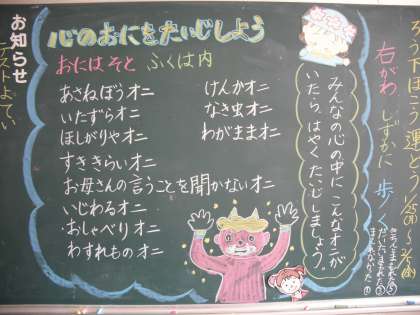 心のおにをたいじしよう
おにはそと ふくは内
あさねぼうオニ
いたずらオニ
ほしがりやオニ
すききらいオニ
お母さんの言うことを聞かないオニ
いじわるオニ
おしゃべりオニ
わすれものオニ
けんかオニ
なき虫オニ
わがままオニ
みんなの心の中にこんなオニが
いたら はやくたいじしましょう。
右がわ しずかに 歩く
お知らせ
テストよてい